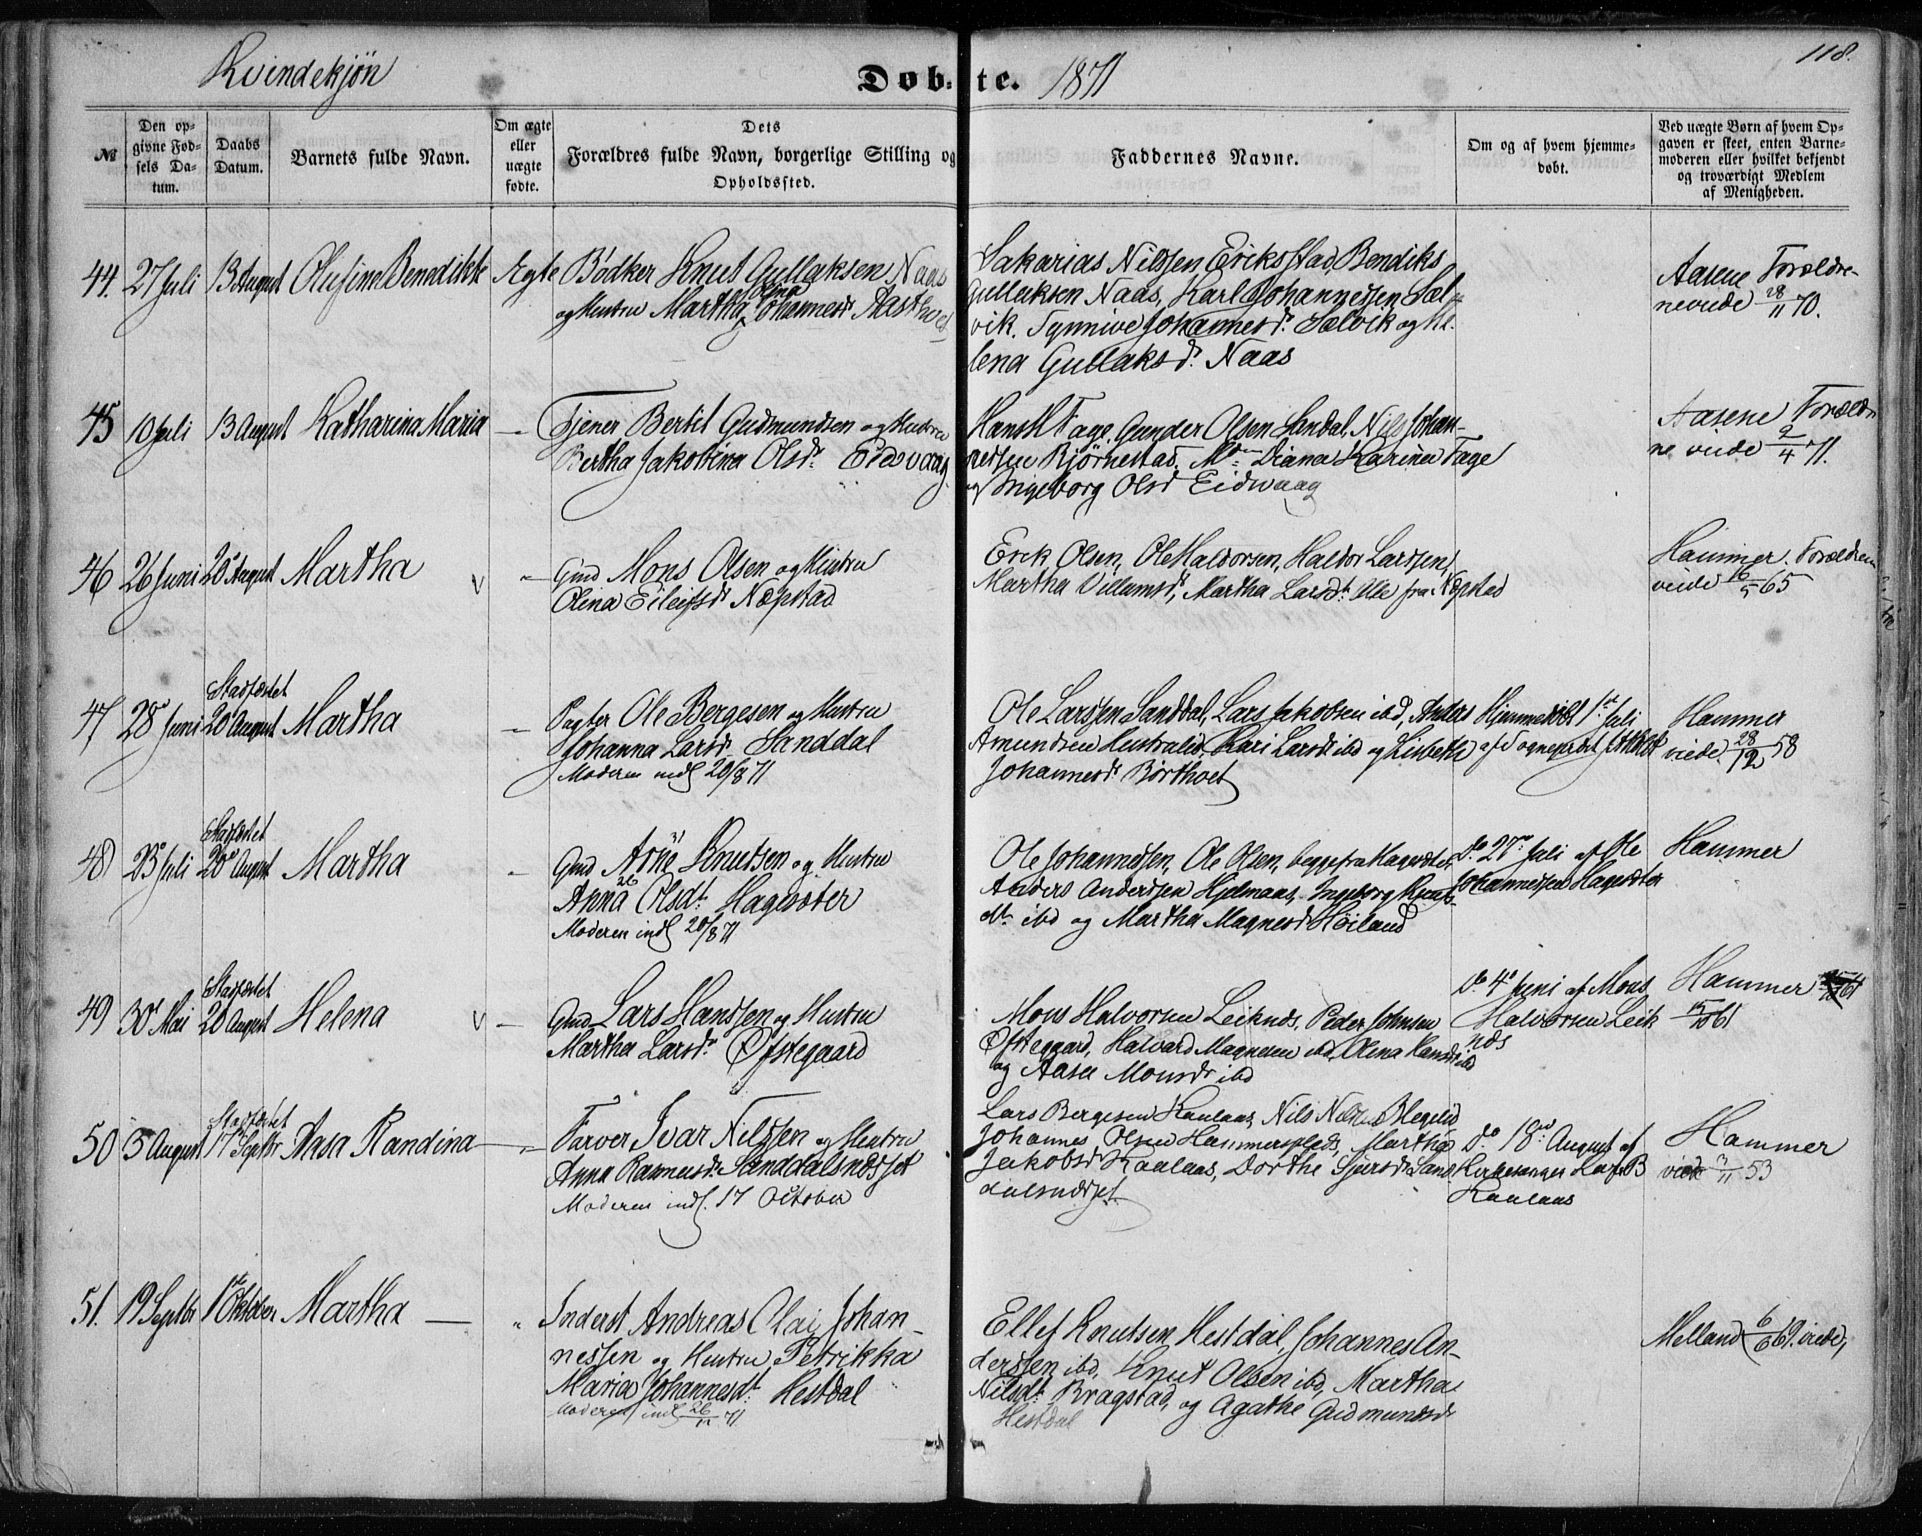 Kvindekjön
Døbte. 1871
118.
№
Den op-
givne Fød-
sels Da-
tum.
Daabs
Datum.
Barnets fulde Navn.
Om ægte
eller
uægte
fødte.
Dets
Forældres fulde Navn, borgerlige Stilling og
Opholdssted.
Faddernes Navne.
Om og af hvem hjemme-
døbt.
Ved uægte Børn af hvem Op-
gaven er skeet, enten Barne-
moderen eller hvilket bekjendt
og troværdigt Medlem
af Menigheden.
44. 27 Juli 13 August Olufine Benedikte Ægte
Bødker Knut Gullaksen Naas
og Hustru Martha Olina Johannesdr
Sakarias Nilssen Eriksstad, Bendiks
Gullaksen Naas, Karl Johannessen Sæl-
vik. Synnive Johannesdr. Sælvik og He-
lena Gullaksdr. Naas
Aasene Forældre-
ne viede 28/11 70.
45 10 Juli 13 August Katharina Maria —
Tjener Bertil Gudmundsen og Hustru
Bertha Jakobina Olsdr. Eidsvaag
Hans H Fage, Gunder Olsen Sandal, Nils Johan-
nessen Bjørnestad. Diana Karina Fage
og Ingeborg Olsd Eidsvaag
Aasene Foreld-
ne viede 2/4 71.
46 26 Juni 20 August Martha v "
Gmd Mons Olsen og Hustru
Olina Eileifsdr Næpstad
Erik Olsen, Ole Haldorsen, Haldor Larssen,
Martha Villumsdr, Martha Larsdt. Alle fra Næpstad
Hammer. Forældrene
viede 16/5 65
47 28 Juni Stadfæstet
20 August Martha "
Pagter Ole Bergesen og Hustru
Johanna Larsdr Sanddal
Moderen indl 20/8 71
Ole Larssen Sanddal, Lars Jakobsen ibd, Anders
Amundsen Kari Larsdr ibd og Lisbeth
Johannesdr
Hjemmedøbt 1ste Juli
af Sogneprest
Hammer
viede 28/12 58
48 23 Juli Stadfæstet
20 August Martha "
Gmd Arne Knutsen og Hustru
Anna Olsdt. Hagevter
Moderen indl 20/8 71
Ole Johannessen, Ole Olsen, begge fra
Anders Anderssen Hjelmaas, Ingeborg
dtr ibd og Martha Magnesdr Høiland
Do 27 Juli af Ole
Johannessen
Hammer
49 30 Mai Stadfæstet
20 August Helena v —
Gmd Lars Hanssen og Hustru
Martha Larsdr Øfstegaard
Mons Halvorsen Leiknes, Peder Johnsen
Øfstegaard, Halvard Magnesen ibd, Olena Hansdr ibd
og Aase Monsdr ibd
Do 4 Juni af Mons
Halvorsen Leik
næs
Hammer
15/10 61
50 5 August Stadfæstet
17 Septbr Aasa Randina — "
Farver Ivar Nilssen og Hustru
Anna Rasmusdr Sanddalsnæsset
Moderen indl. 17 October
Lars Bergesen Kaulaas, Nils
Johannes Olsen Hammersplads, Martha
Jakobsdr Kaulaas, Dorthe Sjursdr San-
dalsnæsset
Do 18 August af
Kirkesanger B
Kaulaas
Hammer
viede 3/11 53
51. 19 Septbr 1ste Oktober Martha — "
Inderst Andreas Olai Johan-
nessen og Hustru Petrikka
Maria Johannesdt. Hestdal
Moderen indl 26/11 71
Ellef Knutsen Hestdal, Johannes An-
derssen ibd, Knut Olsen ibd, Martha
Nilsdt. Bragstad, og Agathe Gudmundsdr
Hestdal
Melland 6/6 69. viede,